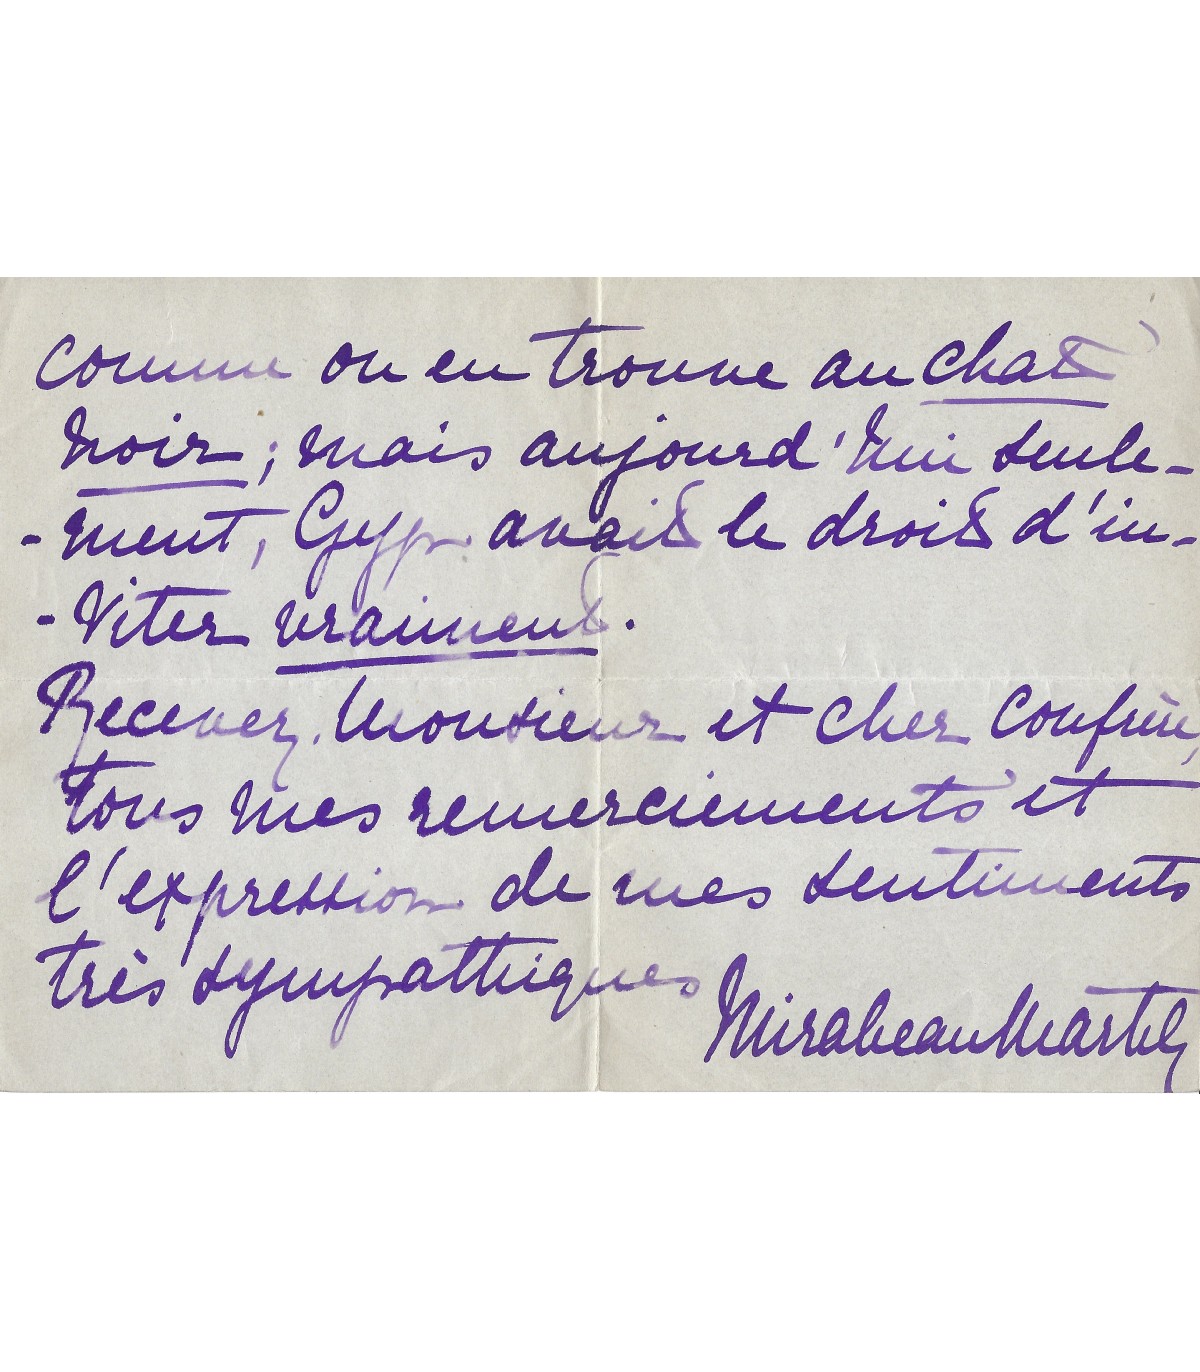 comme on en trouve au chat
noir ; mais aujourd'hui seule-
-ment, Gyp avait le droit d'in-
-viter vraiment.
Recevez, Monsieur et cher Confrère,
tous mes remerciements et
l'expression de mes sentiments
très sympathiques
Mirabeau Martel